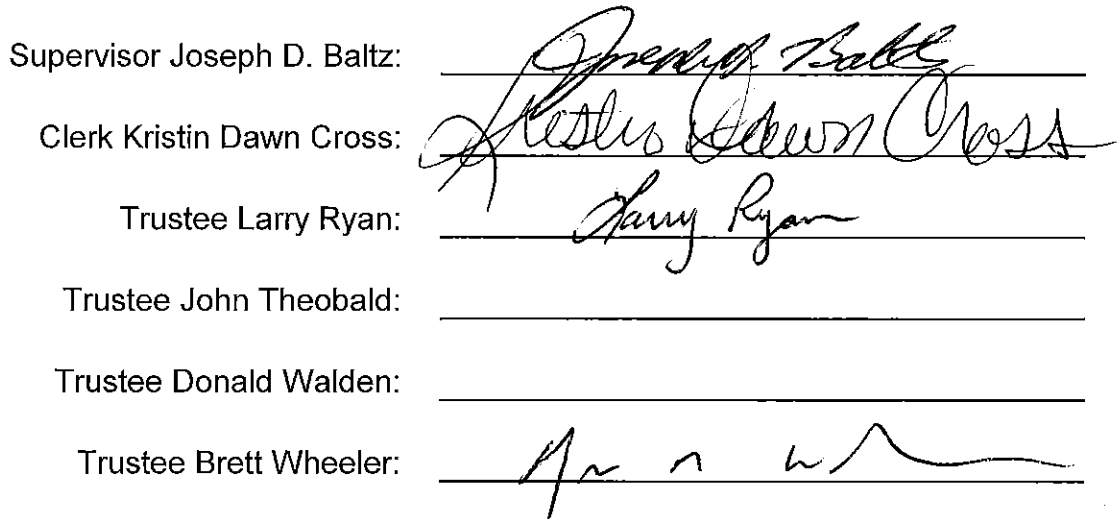 Supervisor Joseph D. Baltz: Joseph D Baltz
Clerk Kristin Dawn Cross: Dawn Cross
Trustee Larry Ryan: Larry Ryan
Trustee John Theobald:
Trustee Donald Walden:
Trustee Brett Wheeler: